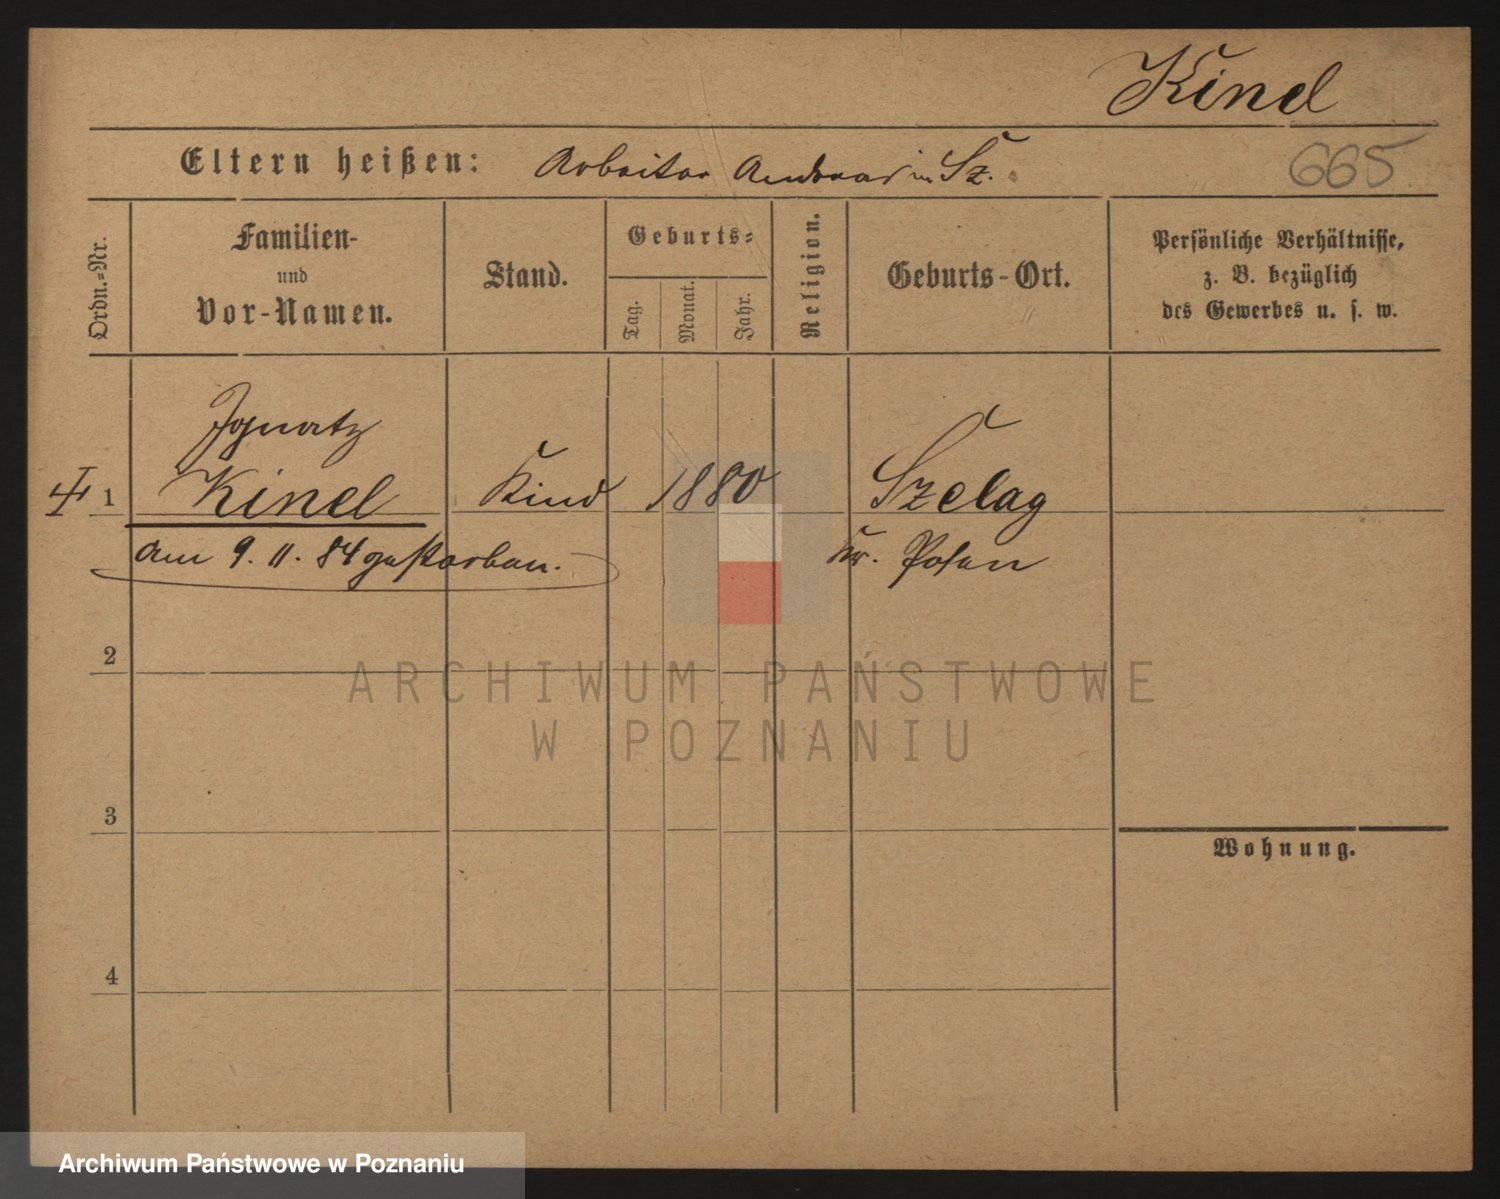 Kinel
Eltern heißen: Arbeiter Andreas in Sz.
665
Ordn.-Nr.
Familien-
und
Vor-Namen.
Stand.
Geburts-
Tag.
Monat.
Jahr.
Religion.
Geburts-Ort.
Persönliche Verhältnisse,
z. B. bezüglich
des Gewerbes u. s. w.
Ignatz
1 Kinel Kind 1880 Szelag
am 9. 11. 84 gestorben. Kr. Posen
2
ARCHIWUM PAŃSTWOWE
W POZNANIU
3
Wohnung.
4
Archiwum Państwowe w Poznaniu